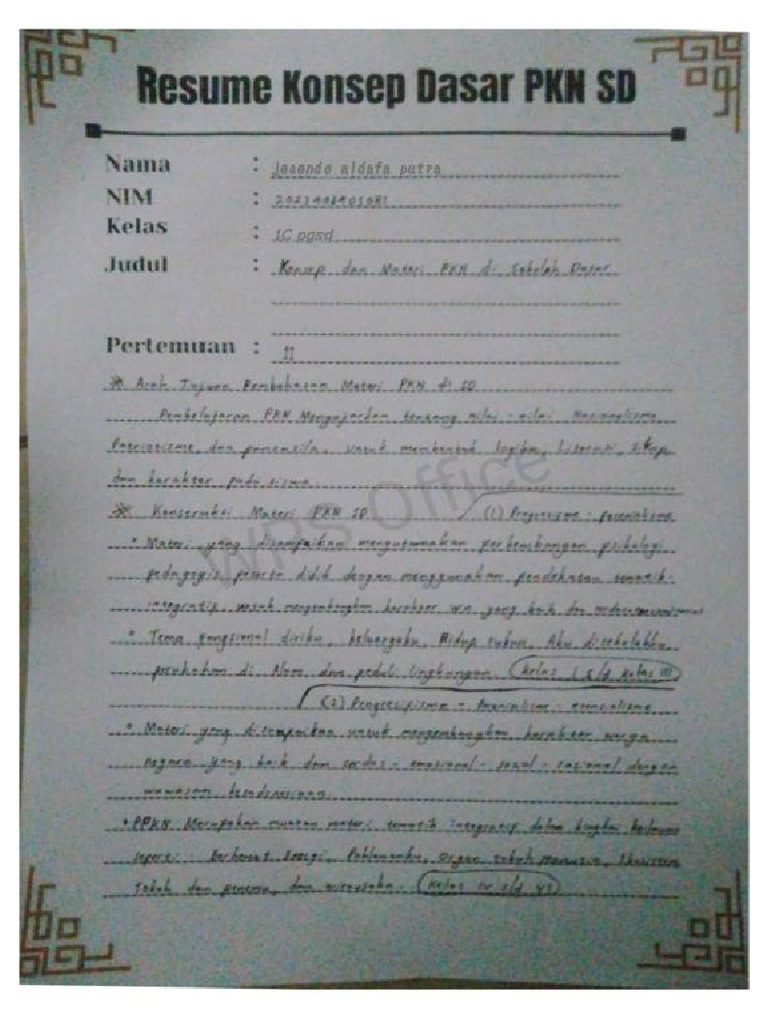 Resume Konsep Dasar PKN SD
Nama : Jesendo aldafa putra
NIM :
Kelas : 1C pgsd
Judul : Konsep dan Materi PKN di Sekolah Dasar
Pertemuan : II
※ Arah Tujuan Pembahasan Materi PKN di SD
Pembelajaran PKN Mengajarkan tentang nilai - nilai Nasionalisme,
Patriotisme, dan pancasila, untuk membentuk logika, Literasi, sikap
dan karakter pada siswa
※ Konstruksi Materi PKN SD (1) Progresisme -
• Materi yang disampaikan menggunakan perkembangan psikologi
pedagogis peserta didik dengan menggunakan pendekatan tematik-
integratif untuk mengembangkan karakter WN yang baik dan
• Tema diriku, keluargaku, Hidup rukun, Aku disekolahku,
perubahan di Alam dan peduli lingkungan. (Kelas I s/d Kelas III)
(2)
• Materi yang disampaikan untuk mengembangkan karakter warga
negara yang baik dan cerdas - emosional - sosial - rasional dengan
wawasan
• PPKN Merupakan muatan materi tematik integratif dalam bingkai
seperti: Berhemat Energi, Pahlawanku, Organ tubuh manusia, Ekosistem
Tokoh dan penemu, dan wirausaha. (Kelas IV s/d VI)
WPS Office